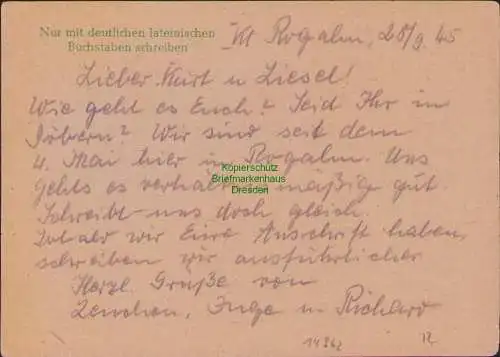 Nur mit deutlichen lateinischen
Buchstaben schreiben
Rogahn, 28/9. 45
Lieber Kurt u Liesel!
Wie geht es Euch? Seid Ihr in
Wir sind seit dem
4. Mai hier in Rogahn. Uns
gehts es verhältnißmäßig gut.
Schreibt uns doch gleich.
Sobald wir Eure Anschrift haben,
schreiben wir ausführlicher
Herzl. Grüße von
Lenchen, Inge u Richard
Kopierschutz
Briefmarkenhaus
Dresden